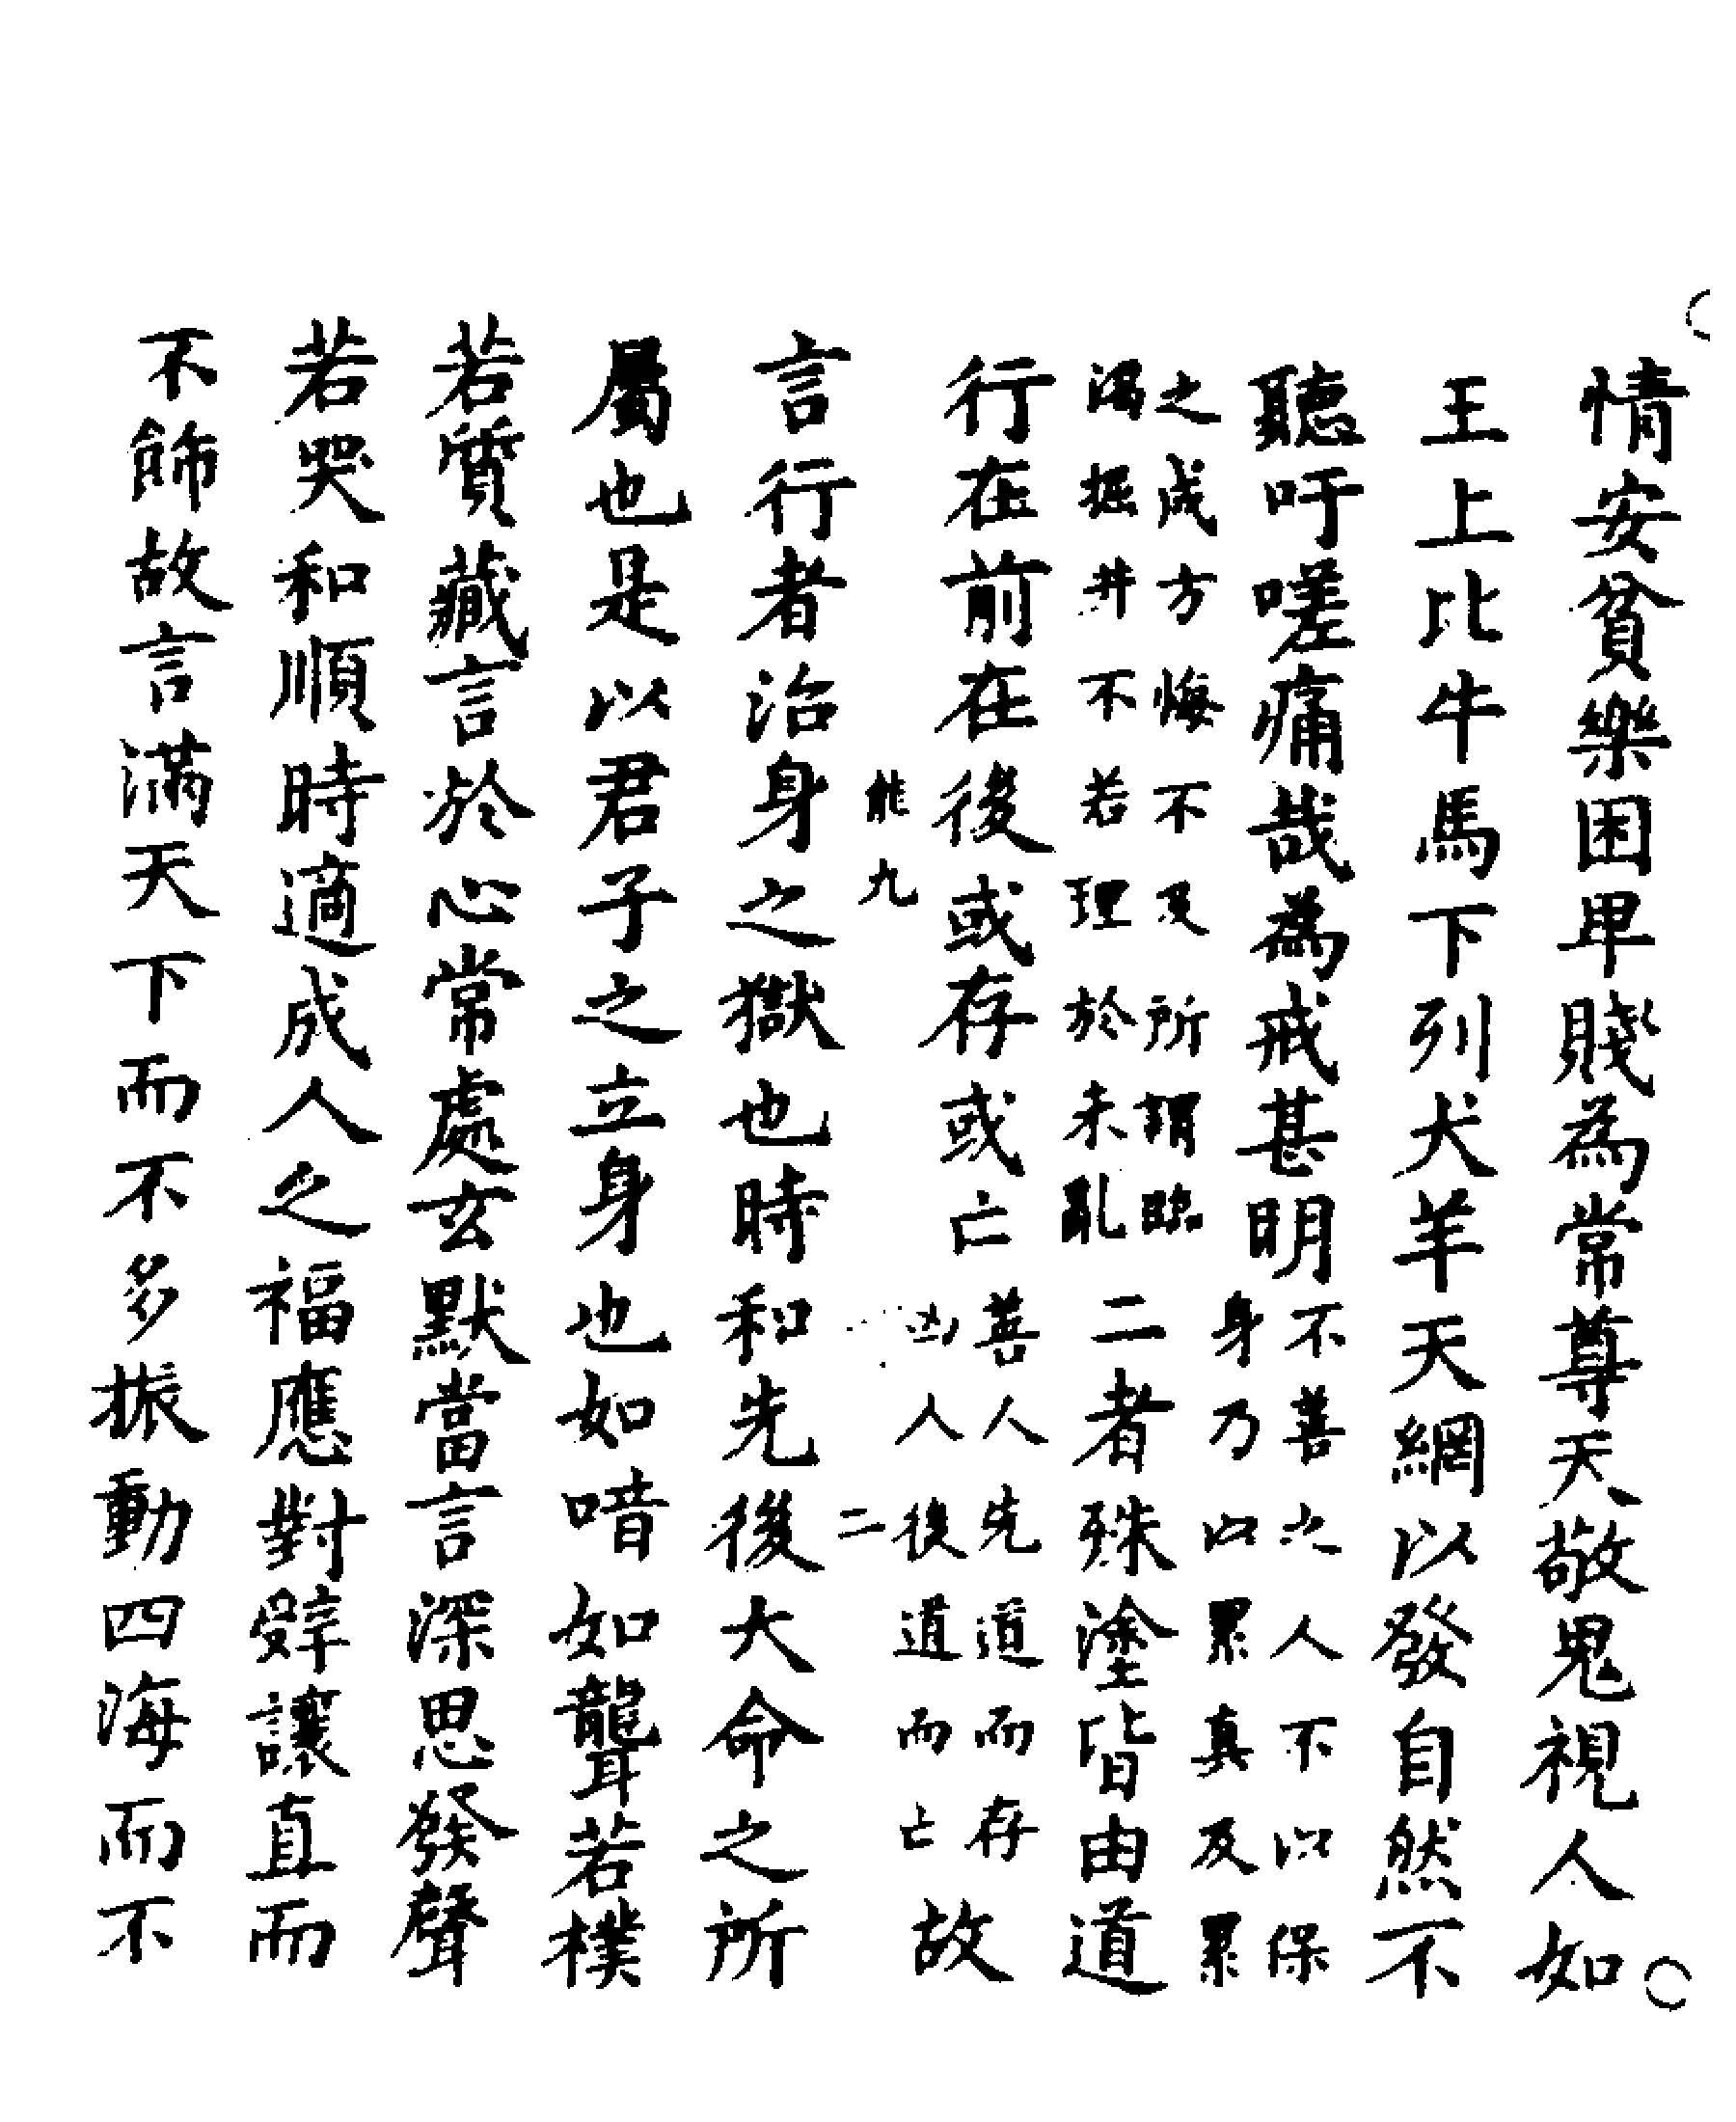 情安貧樂困卑賤為常尊天敬鬼視人如
王上比牛馬下列犬羊天網以發自然不
聽吁嗟痛哉為戒甚明不善之人不以保
身乃以累真及累
之成方悔不及所謂臨
渴掘井不若理於未亂二者殊塗皆由道
行在前在後或存或亡善人先道而存
凶人後道而亡故
能九
二
言行者治身之獄也時和先後大命之所
屬也是以君子之立身也如喑如聾若樸
若質藏言於心常處玄默當言深思發聲
若哭和順時適成人之福應對辭讓直而
不飾故言滿天下而不多振動四海而不